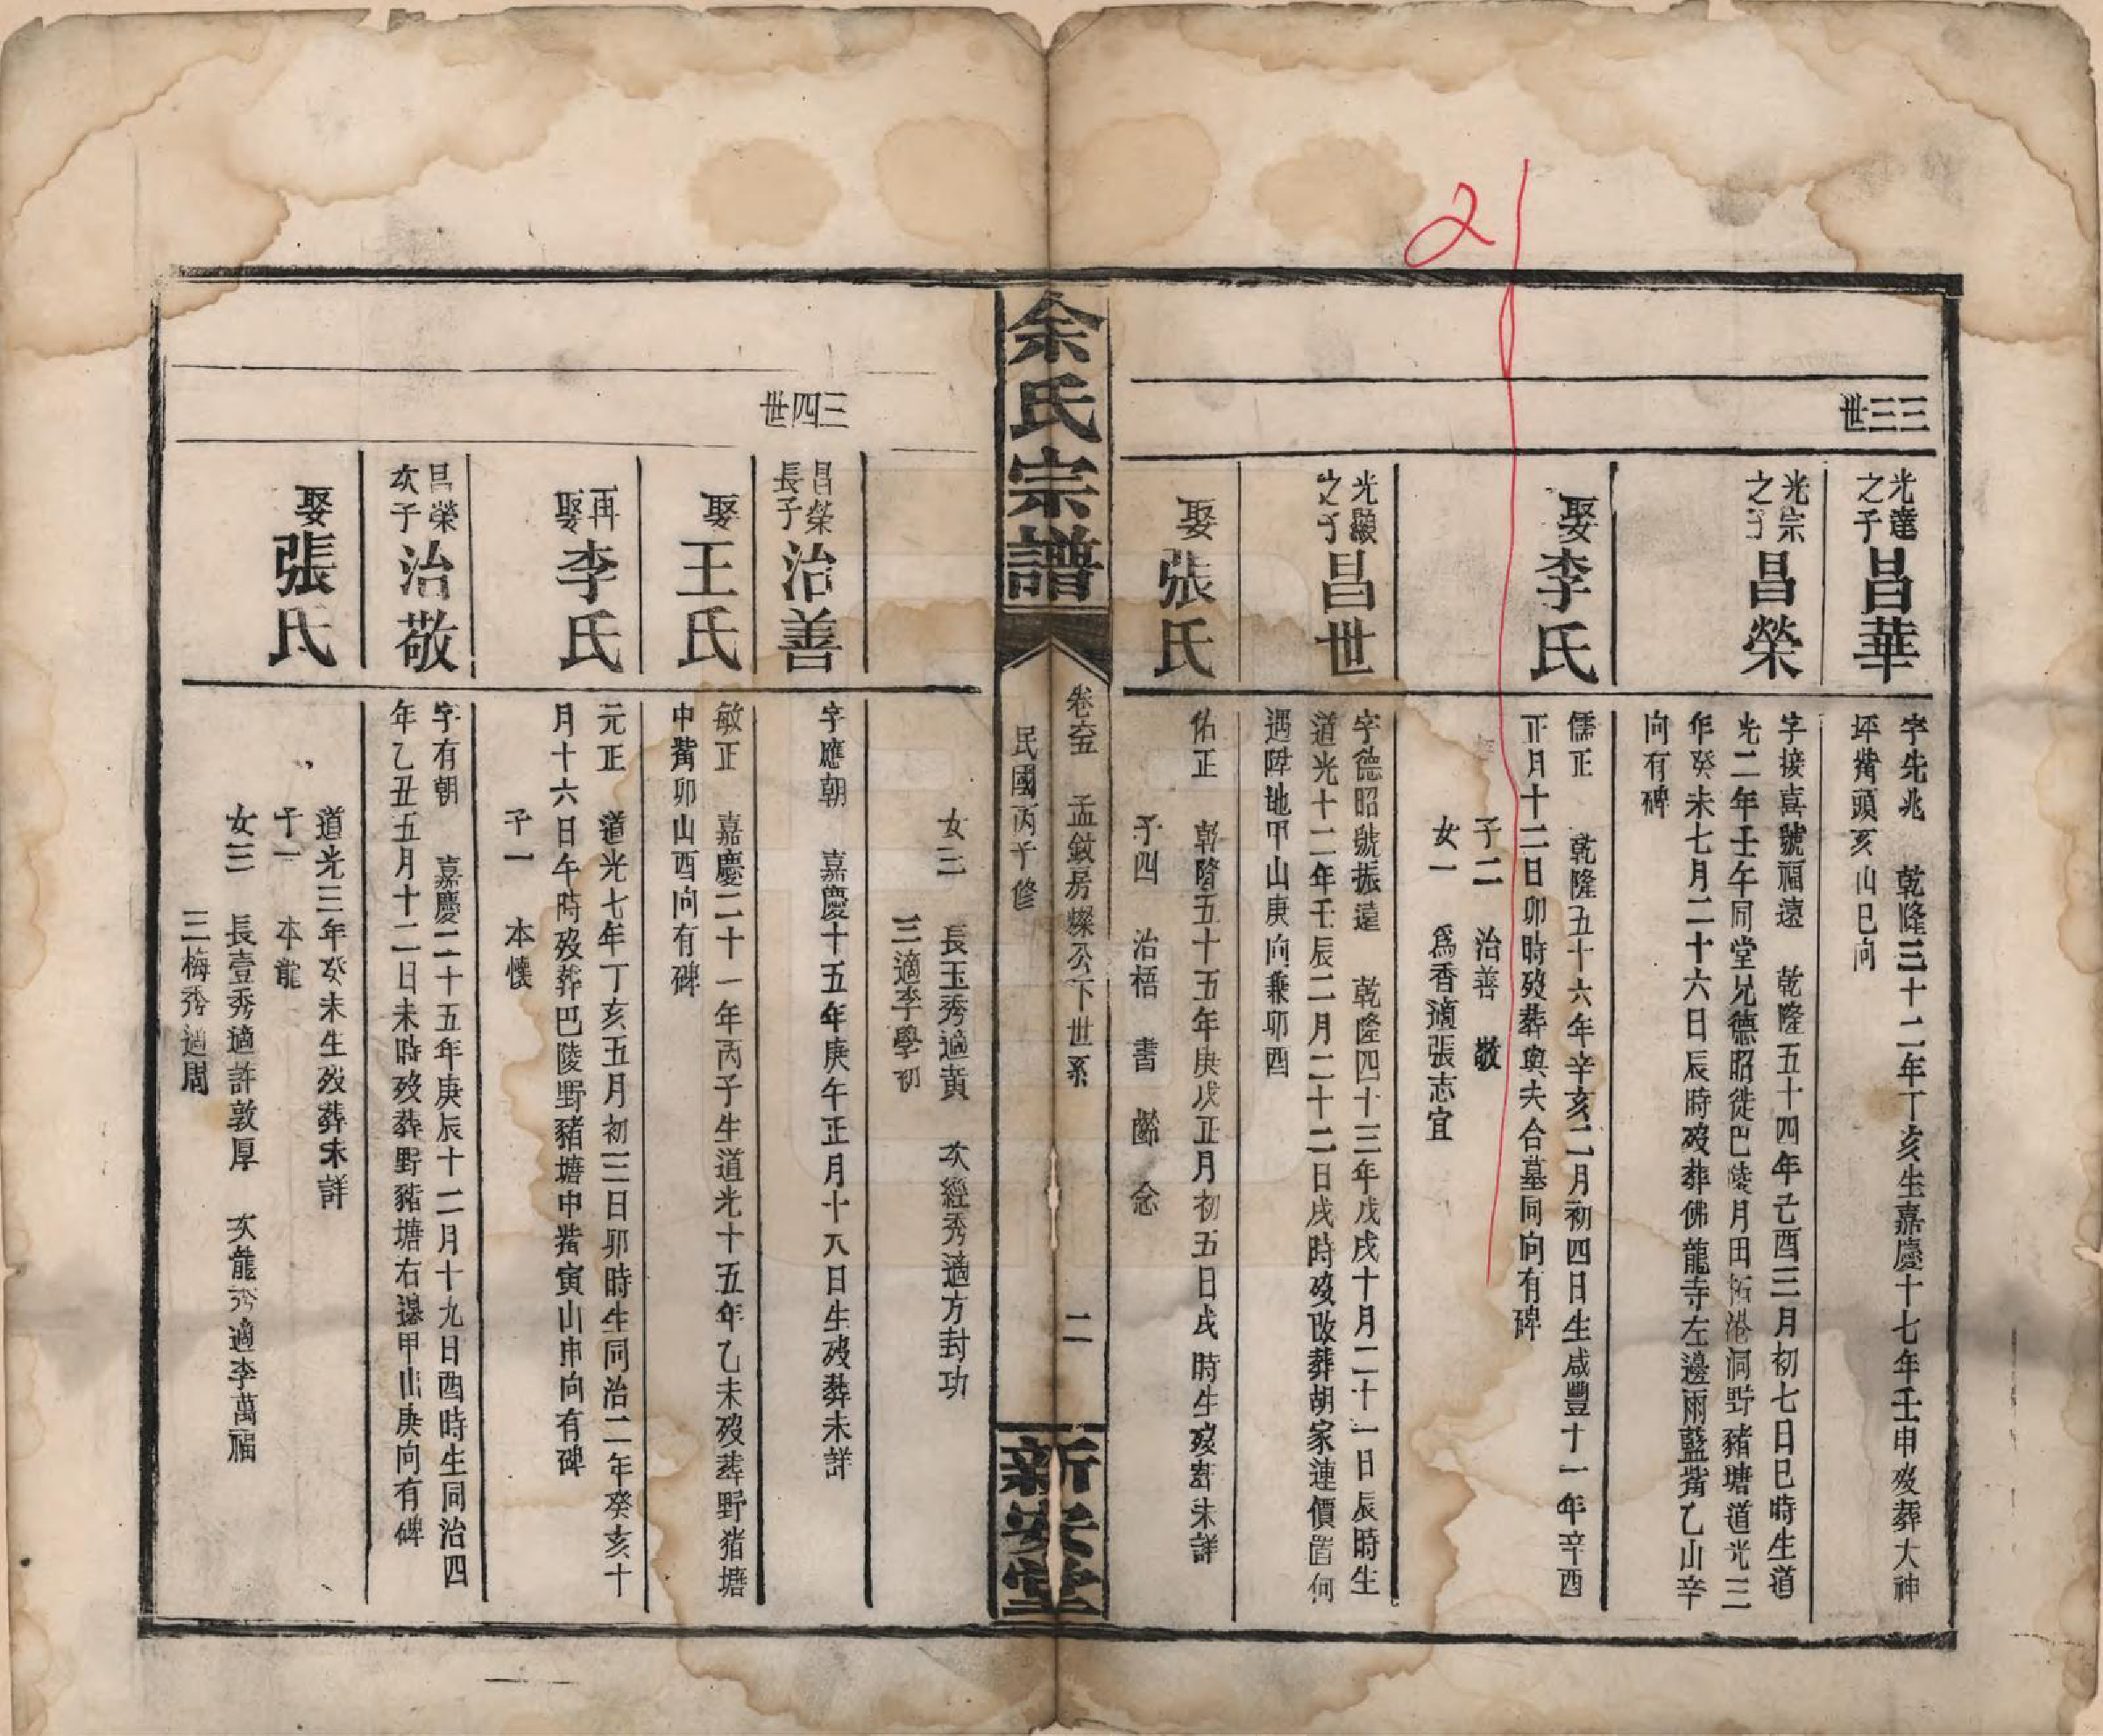 三三世
光達之子昌華
字先兆 乾隆三十二年丁亥生嘉慶十七年壬申歿葬大神
坪觜頭亥山巳向
光宗之子昌榮
字接喜號福遠 乾隆五十四年己酉三月初七日巳時生道
光二年壬午同堂兄德昭徙巴陵月田拓港洞野豬塘道光三
年癸未七月二十六日辰時歿葬佛龍寺左邊雨藍觜乙山辛
向有碑
娶李氏
儒正 乾隆五十六年辛亥二月初四日生咸豐十一年辛酉
正月十二日卯時歿葬與夫合墓同向有碑
子二 治善 敬
女一 為香適張志宜
光顯之子昌世
字德昭號振遠 乾隆四十三年戊戌十月二十一日辰時生
道光十二年壬辰二月二十二日戌時歿改葬胡家連價置何
遇陞地甲山庚向兼卯酉
娶張氏
佑正 乾隆五十五年庚戌正月初五日戌時生歿葬未詳
子四 治梧 書 念
余氏宗譜
卷六五 孟敘房燦公下世系 二
民國丙子修
新安堂
女三 長玉秀適黃 次經秀適方封功
三適李學初
三四世
昌榮長子治善
字應朝 嘉慶十五年庚午正月十八日生歿葬未詳
娶王氏
敏正 嘉慶二十一年丙子生道光十五年乙未歿葬野猪塘
中觜卯山酉向有碑
再娶李氏
元正 道光七年丁亥五月初三日卯時生同治二年癸亥十
月十六日午時歿葬巴陵野豬塘中觜寅山申向有碑
子一 本懐
昌榮次子治敬
字有朝 嘉慶二十五年庚辰十二月十九日酉時生同治四
年乙丑五月十二日未時歿葬野豬塘右邊甲山庚向有碑
娶張氏
道光三年癸未生歿葬未詳
子一 本龍
女三 長壹秀適許敦厚 次龍秀適李萬福
三梅秀適周